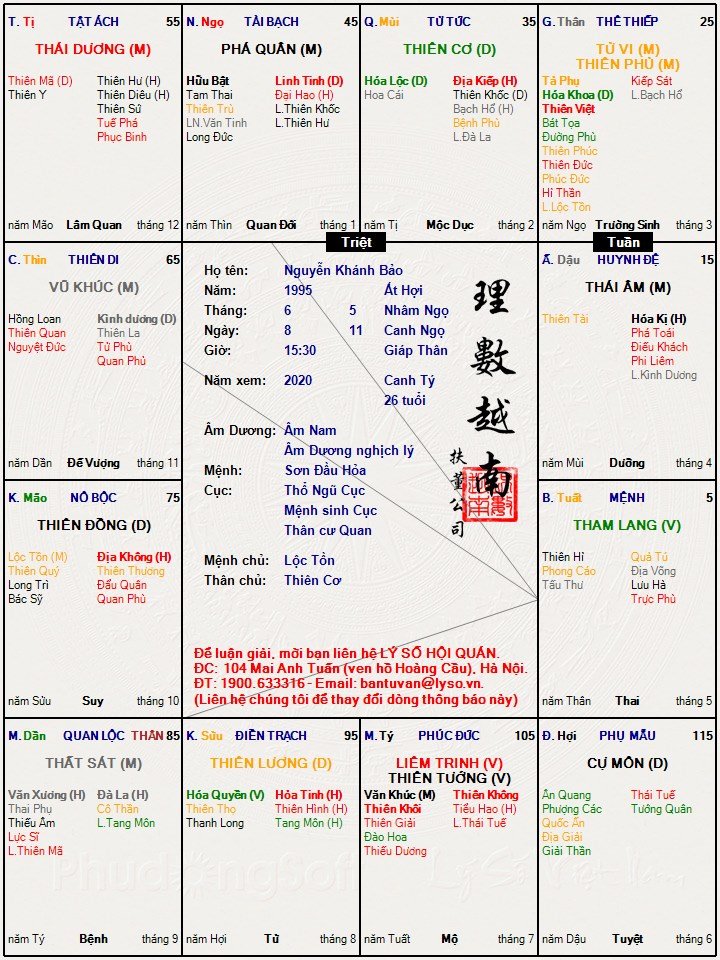 T. Tị TẬT ÁCH 55
THÁI DƯƠNG (M)
Thiên Mã (D) Thiên Hư (H)
Thiên Y Thiên Diêu (H)
Thiên Sứ
Tuế Phá
Phục Binh
năm Mão Lâm Quan tháng 12
N. Ngọ TÀI BẠCH 45
PHÁ QUÂN (M)
Hữu Bật Linh Tinh (D)
Tam Thai Đại Hao (H)
Thiên Trù L.Thiên Khốc
LN.Văn Tinh L.Thiên Hư
Long Đức
năm Thìn Quan Đới tháng 1
Q. Mùi TỬ TỨC 35
THIÊN CƠ (D)
Hóa Lộc (D) Địa Kiếp (H)
Hoa Cái Thiên Khốc (D)
Bạch Hổ (H)
Bệnh Phù
L.Đà La
năm Tị Mộc Dục tháng 2
G. Thân THÊ THIẾP 25
TỬ VI (M)
THIÊN PHỦ (M)
Tả Phụ Kiếp Sát
Hóa Khoa (D) L.Bạch Hổ
Thiên Việt
Bát Tọa
Đường Phù
Thiên Phúc
Thiên Đức
Phúc Đức
Hỉ Thần
L.Lộc Tồn
năm Ngọ Trường Sinh tháng 3
Triệt
Tuần
C. Thìn THIÊN DI 65
VŨ KHÚC (M)
Hồng Loan Kình dương (D)
Thiên Quan Thiên La
Nguyệt Đức Tử Phù
Quan Phủ
năm Dần Đế Vượng tháng 11
Họ tên: Nguyễn Khánh Bảo
Năm: 1995 Ất Hợi
Tháng: 6 5 Nhâm Ngọ
Ngày: 8 11 Canh Ngọ
Giờ: 15:30 Giáp Thân
Năm xem: 2020 Canh Tý
26 tuổi
Âm Dương: Âm Nam
Âm Dương nghịch lý
Mệnh: Sơn Đầu Hỏa
Cục: Thổ Ngũ Cục
Mệnh sinh Cục
Thân cư Quan
Mệnh chủ: Lộc Tồn
Thân chủ: Thiên Cơ
理數越南
扶董公司
Để luận giải, mời bạn liên hệ LÝ SỐ HỘI QUÁN.
ĐC: 104 Mai Anh Tuấn (ven hồ Hoàng Cầu), Hà Nội.
ĐT: 1900.633316 - Email: bantuvan@lyso.vn.
(Liên hệ chúng tôi để thay đổi dòng thông báo này)
Ă. Dậu HUYNH ĐỆ 15
THÁI ÂM (M)
Thiên Tài Hóa Kị (H)
Phá Toái
Điếu Khách
Phi Liêm
L.Kình Dương
năm Mùi Dưỡng tháng 4
K. Mão NÔ BỘC 75
THIÊN ĐỒNG (D)
Lộc Tồn (M) Địa Không (H)
Thiên Quý Thiên Thương
Long Trì Đẩu Quân
Bác Sỹ Quan Phù
năm Sửu Suy tháng 10
B. Tuất MỆNH 5
THAM LANG (V)
Thiên Hỉ Quả Tú
Phong Cáo Địa Võng
Tấu Thư Lưu Hà
Trực Phù
năm Thân Thai tháng 5
M. Dần QUAN LỘC THÂN 85
THẤT SÁT (M)
Văn Xương (H) Đà La (H)
Thai Phụ Cô Thần
Thiếu Âm L.Tang Môn
Lực Sĩ
L.Thiên Mã
năm Tý Bệnh tháng 9
K. Sửu ĐIỀN TRẠCH 95
THIÊN LƯƠNG (D)
Hóa Quyền (V) Hỏa Tinh (H)
Thiên Thọ Thiên Hình (H)
Thanh Long Tang Môn (H)
năm Hợi Tử tháng 8
M. Tý PHÚC ĐỨC 105
LIÊM TRINH (V)
THIÊN TƯỚNG (V)
Văn Khúc (M) Thiên Không
Thiên Khôi Tiểu Hao (H)
Thiên Giải L.Thái Tuế
Đào Hoa
Thiếu Dương
năm Tuất Mộ tháng 7
Đ. Hợi PHỤ MẪU 115
CỰ MÔN (D)
Ân Quang Thái Tuế
Phượng Các Tướng Quân
Quốc Ấn
Địa Giải
Giải Thần
năm Dậu Tuyệt tháng 6
Phudongsoft Lý Số Việt Nam